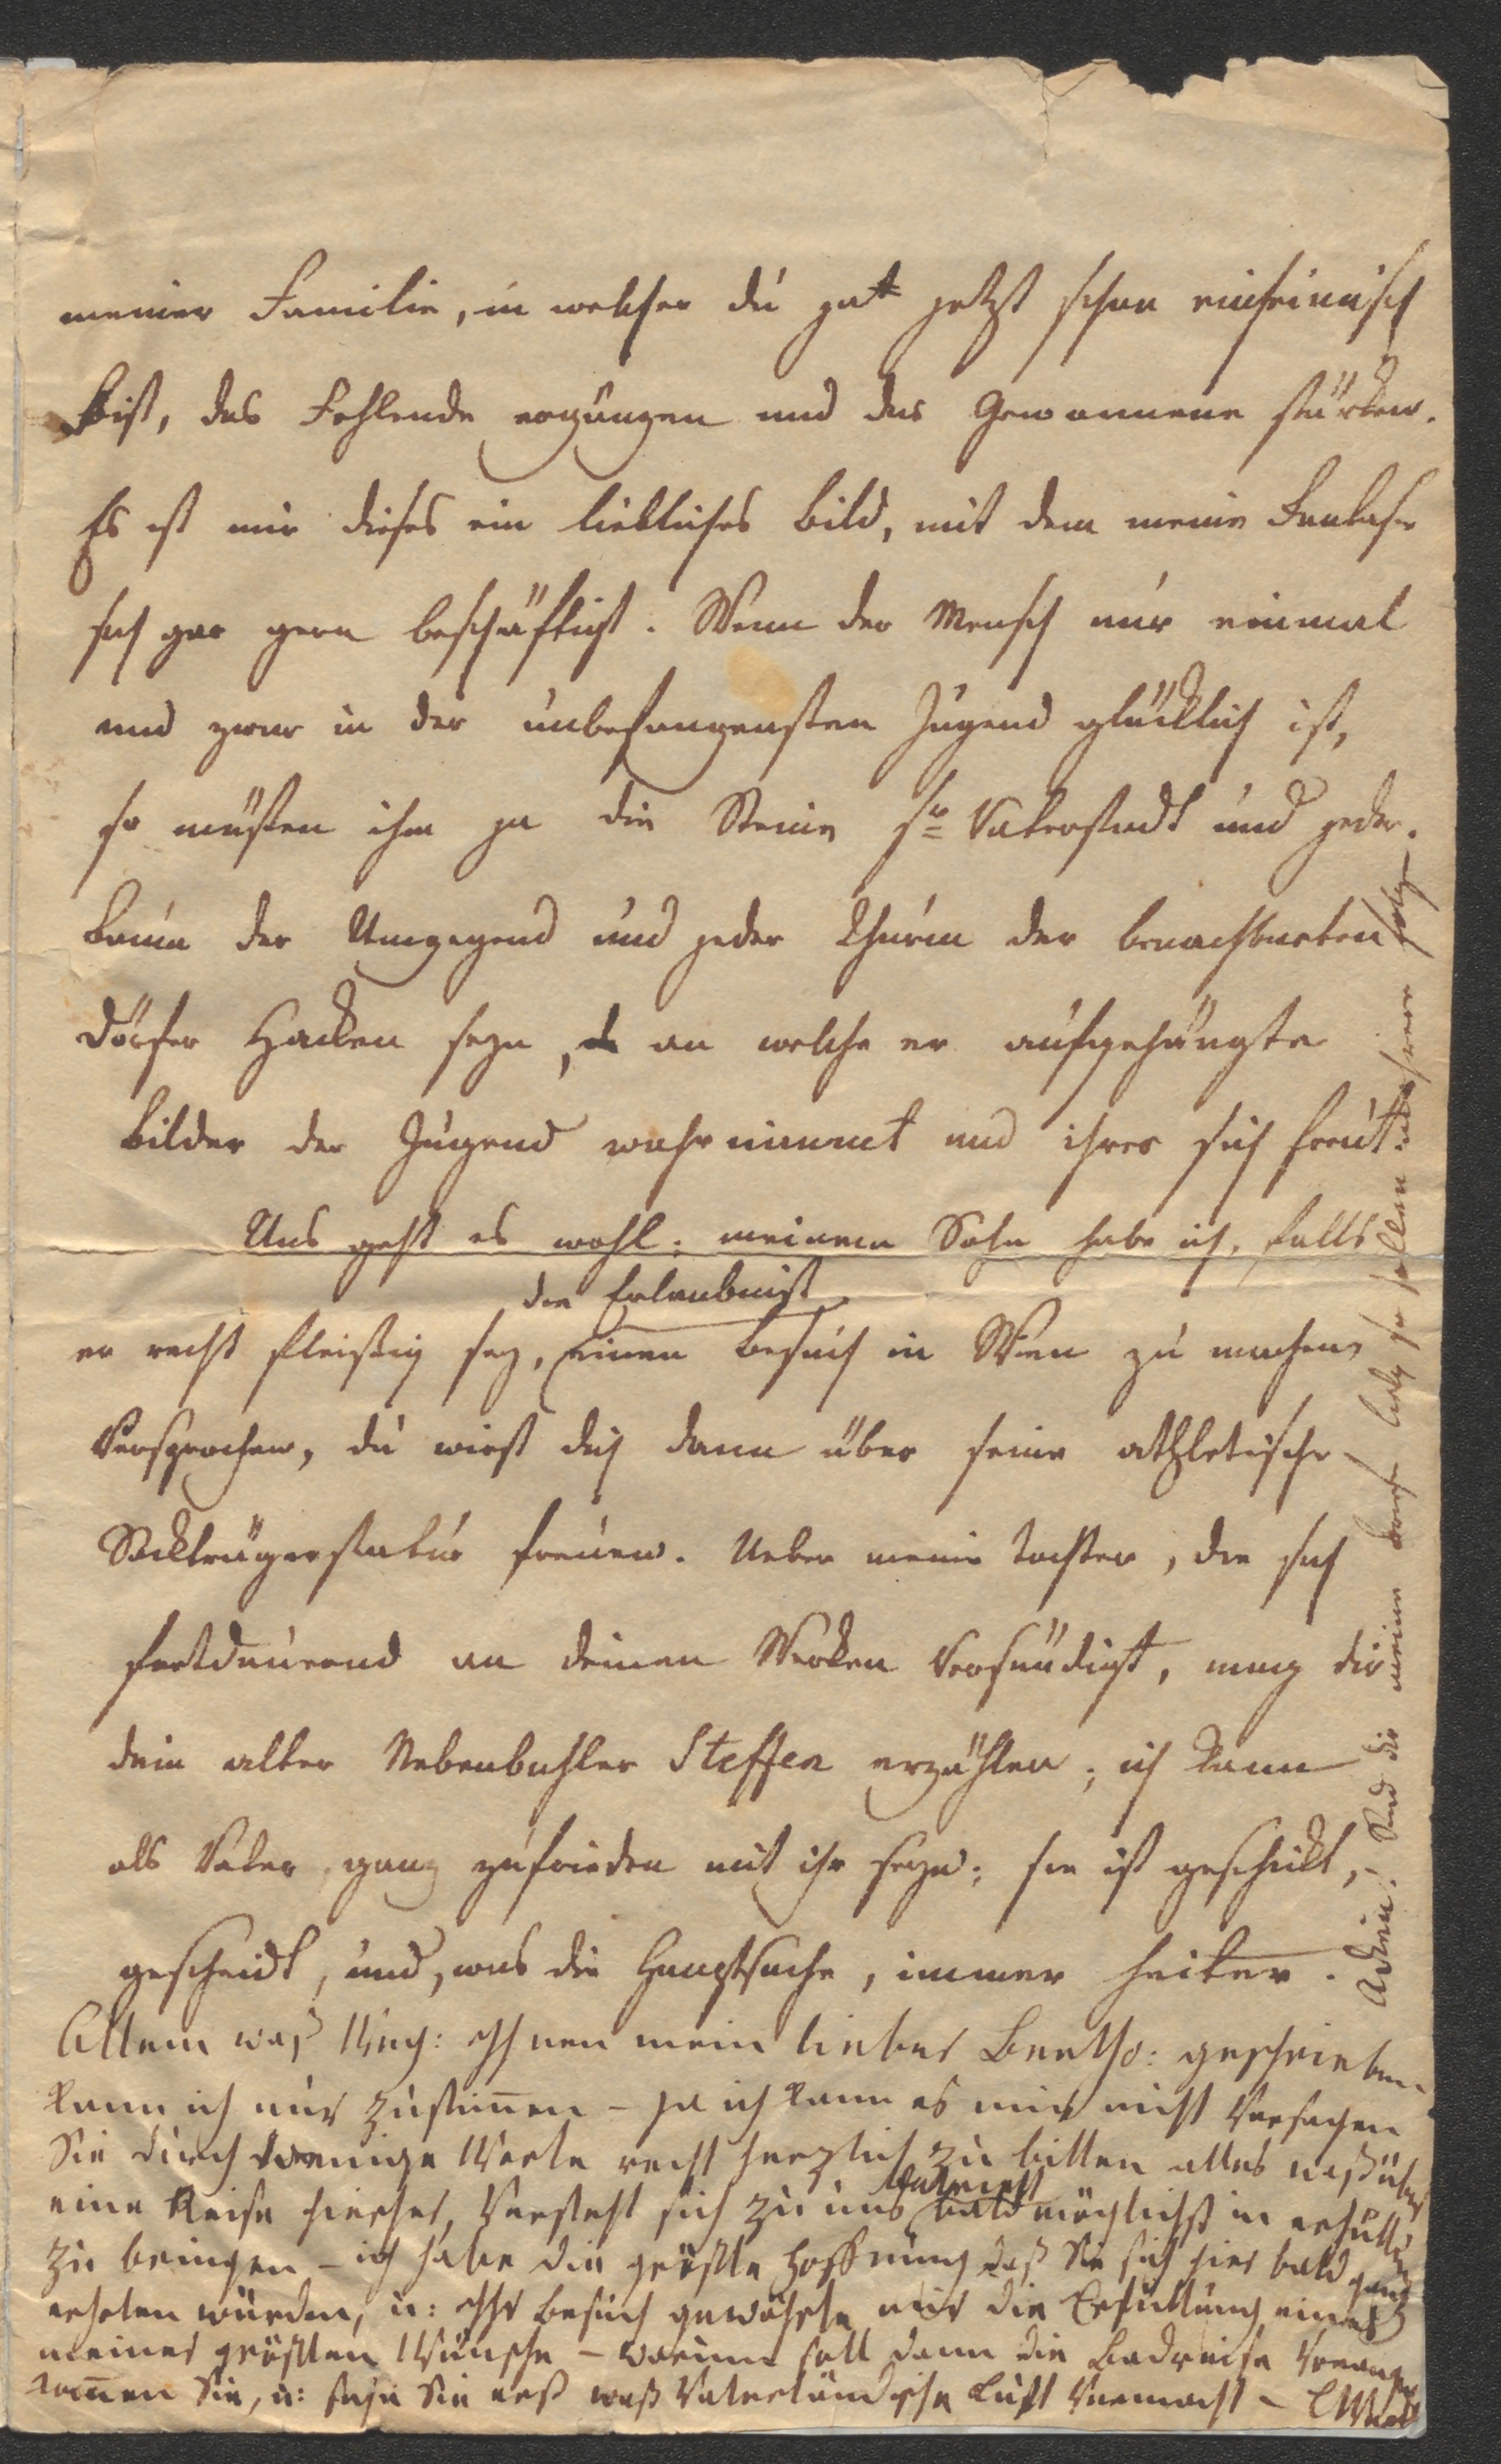 meiner Familie, in welcher du ja jetzt schon einheimisch
bist, das Fehlende ergänzen und das Gewonnene stärken.
Es ist mir dieses ein liebliches Bild, mit dem meine Fantasie
sich gar gern beschäftigt. Wenn der Mensch nur einmal
und zwar in der unbefangensten Jugend glücklich ist,
so müßten ihm ja die Steine sr Vaterstadt und jeder
Baum der Umgegend und jeder Thurm der benachbarten
Dörfer Hacken seyn, an welche er aufgehängte
Bilder der Jugend wahrnimmt und ihrer sich freut.
Uns geht es wohl; meinem Sohn habe ich, falls
die Erlaubnist
er recht fleißig sey, einen Besuch in Wien zu machen,
versprochen, du wirst dich dann über seine athletische
Sackträgerstatur freuen. Ueber meine Tochter, die sich
fortdaurend an deinen Werken versündigt, mag dir
dein alter Nebenbuhler Steffen erzählen; ich kann
als Vater ganz zufrieden mit ihr seyn; sie ist geschickt,
gescheidt, und, was die Hauptsache, immer heiter.
Adieu! Und dir meine
Allem was Weg: Ihnen mein lieber Beetho: geschrieben
kann ich nur zustimen – ja ich kann es mir nicht versagen
Sie durch wenige Worte recht herzlich zu bitten alles waß über
eine Reise hierher, versteht sich zu uns baldmöglichst in erfüllung
zu bringen – ich habe die größte Hoffnung daß Sie sich hier bald ganz
erholen würden, u: Ihr Besuch gewährte mir die Erfüllung eines
meiner größten Wünsche – warum soll dann die Badreise
komen Sie, u: sehn Sie erst waß Vaterländische Luft vermacht –